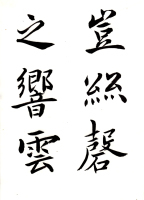 豈絲磬
之響雲